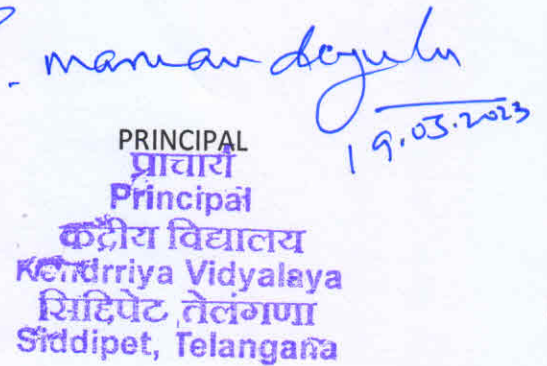 19.03.2023
PRINCIPAL
प्राचार्य
Principal
केंद्रीय विद्यालय
Kendrriya Vidyalaya
सिद्दिपेट, तेलंगणा
Siddipet, Telangana